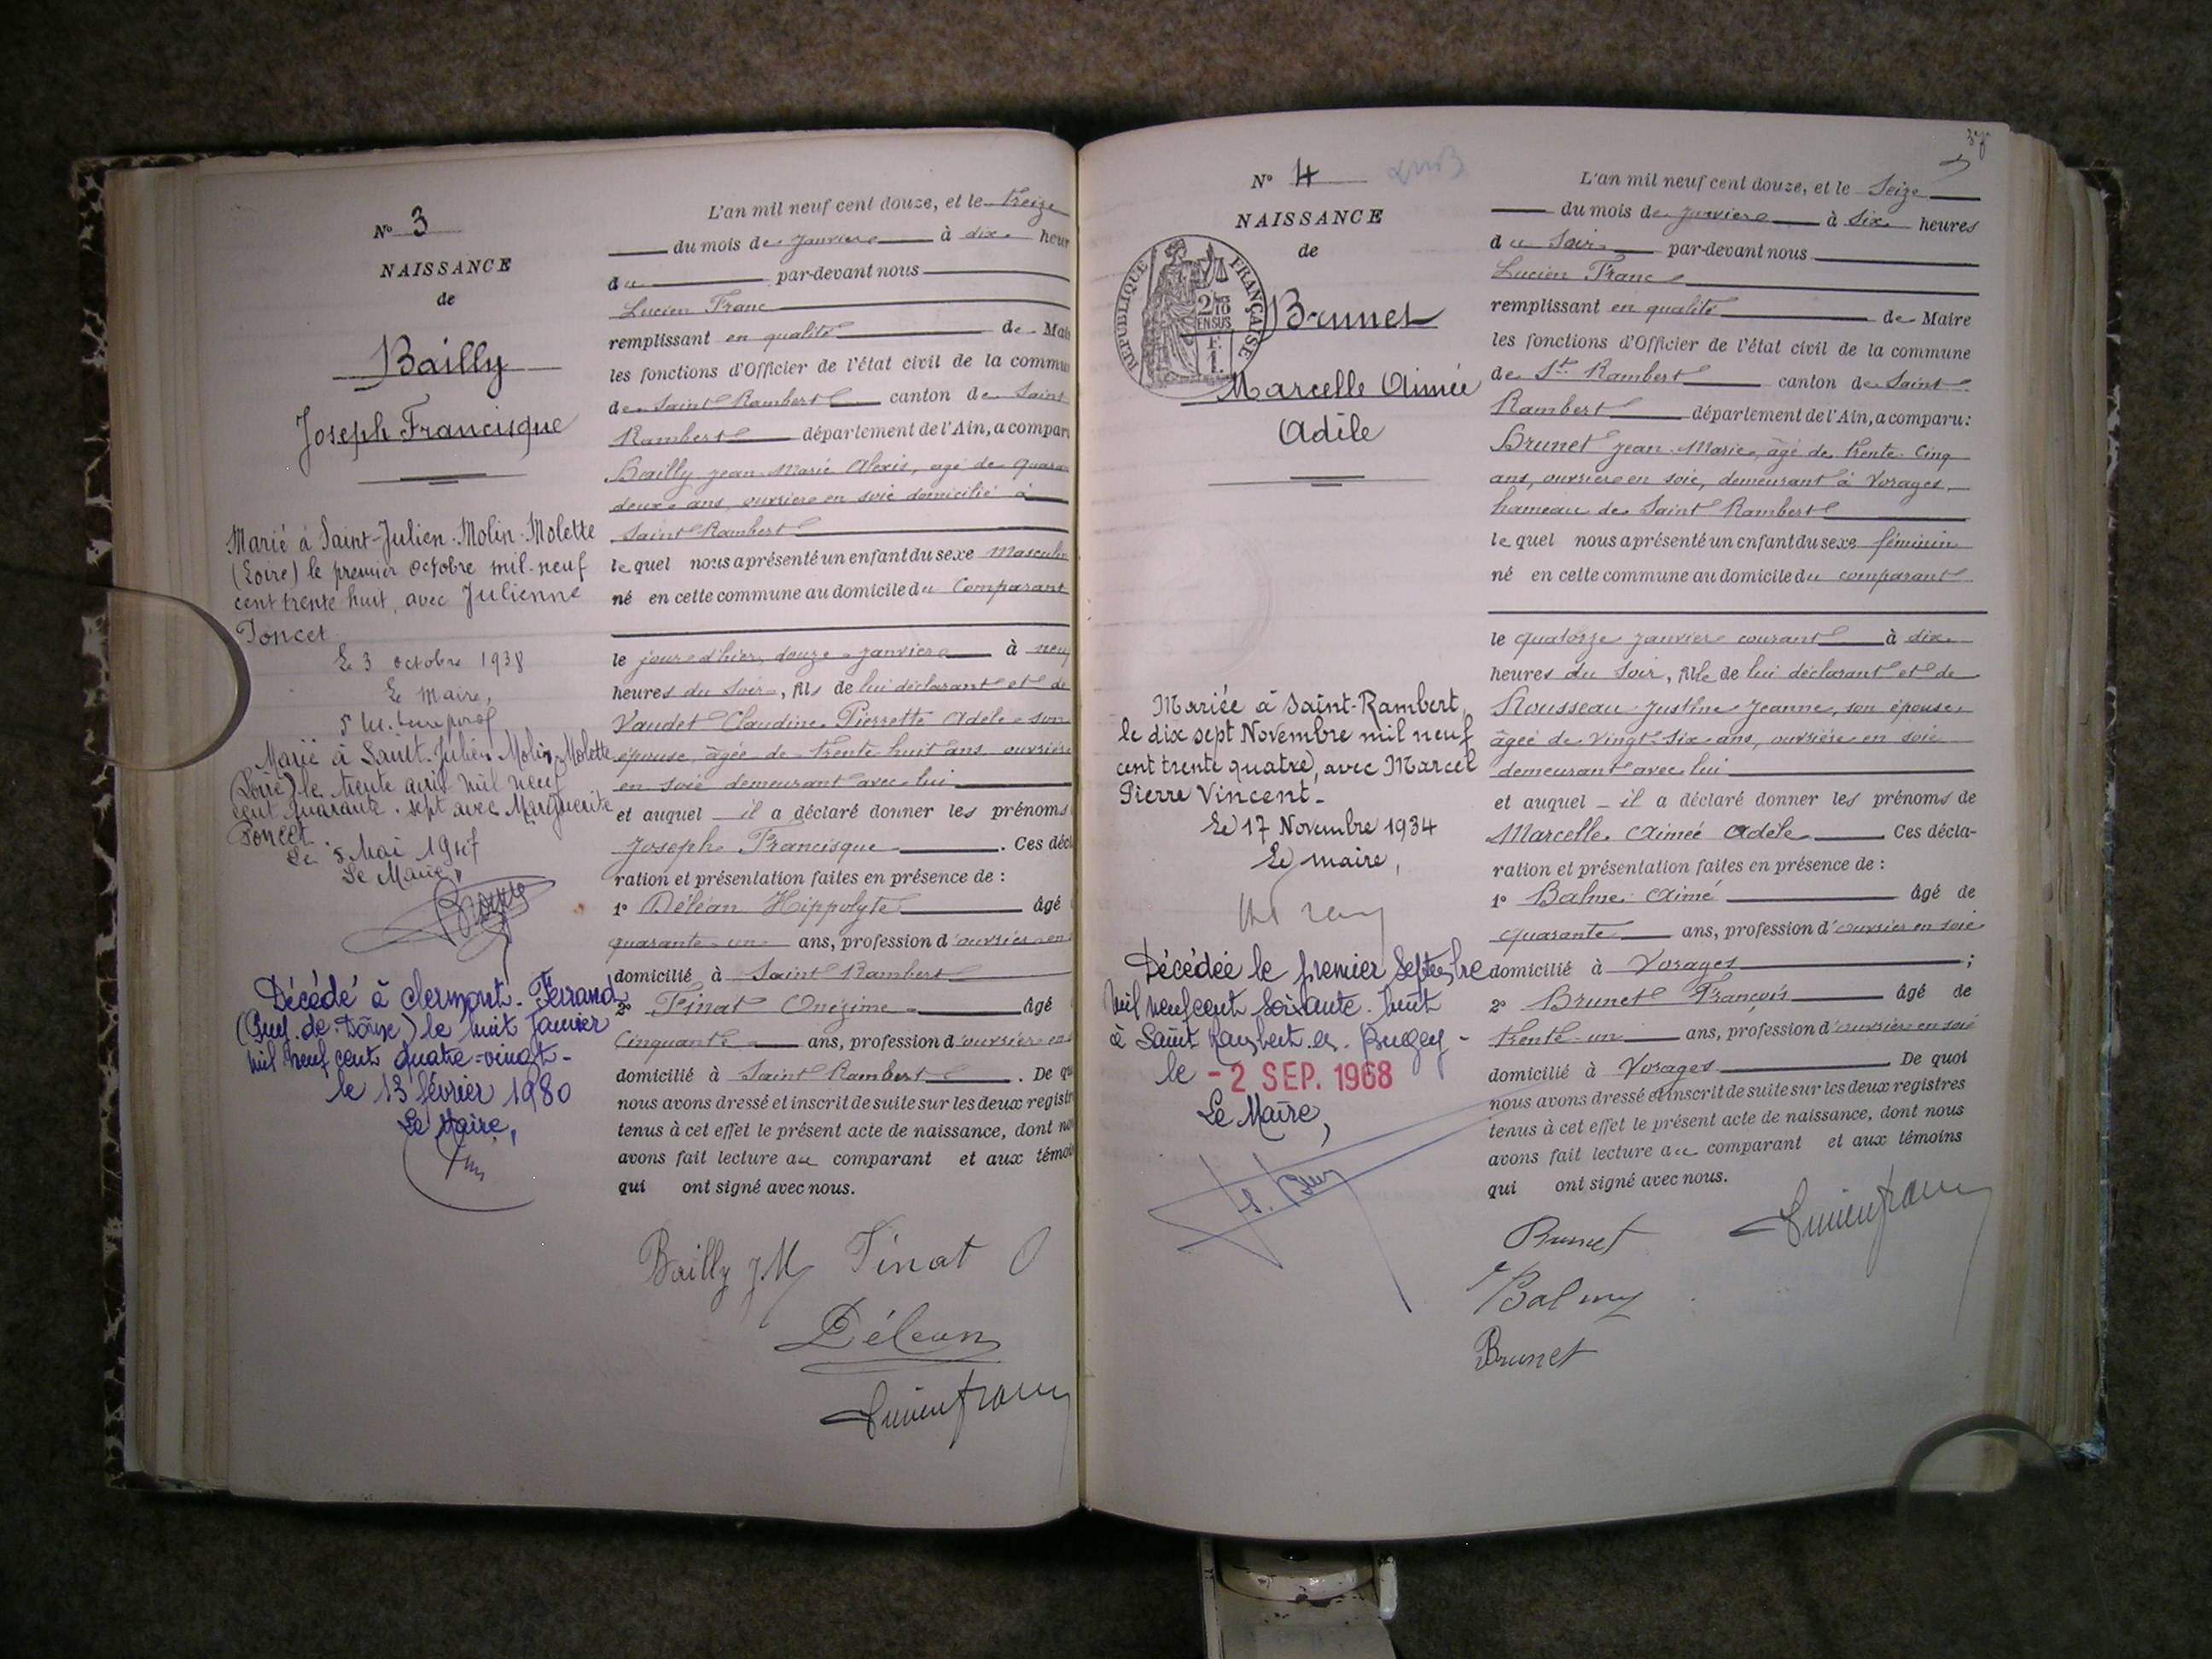 N° 3
NAISSANCE
de
Bailly
Joseph Francisque
Marié à Saint-Julien-Molin-Molette
(Loire) le premier octobre mil-neuf
cent trente huit, avec Julienne
Poncet
Le 3 octobre 1938
Le Maire,
Marié à Saint-Julien Molin Molette
(Loire) le trente avril mil neuf
cent quarante-sept avec Marguerite
Poncet.
Le 5 Mai 1947
Le Maire,
Décédé à Clermont-Ferrand
(Puy-de-Dôme) le huit Janvier
mil neuf cent quatre-vingt-
le 13 février 1980
Le Maire,
L'an mil neuf cent douze, et le treize
du mois de janvier à dix heur
du par-devant nous
Lucien Franc
remplissant en qualité de Mai
les fonctions d'Officier de l'état civil de la commu
de Saint Rambert canton de Saint
Rambert département de l'Ain, a compar
Bailly Jean-Marie Alexis, agé de quara
deux ans, ouvrier en soie domicilié à
Saint Rambert
lequel nous a présenté un enfant du sexe Masculin
né en cette commune au domicile du Comparant
le jour d'hier, douze janvier à neuf
heures du Soir, fils de lui déclarant et de
Vaudet Claudine Pierrette Adèle son
épouse, âgée de trente huit ans ouvrière
en soie demeurant avec lui
et auquel il a déclaré donner les prénoms
Joseph Francisque. Ces décl
ration et présentation faites en présence de :
1° Déléan Hippolyte âgé
quarante-un ans, profession d'ouvrier en
domicilié à Saint Rambert
2° Tinat Onézime âgé
Cinquante ans, profession d'ouvrier en
domicilié à Saint Rambert. De qu
nous avons dressé et inscrit de suite sur les deux registr
tenus à cet effet le présent acte de naissance, dont no
avons fait lecture au comparant et aux témoi
qui ont signé avec nous.
Bailly JM Tinat O
Délean
Lucien franc
N° 4
NAISSANCE
de
RÉPUBLIQUE FRANÇAISE
2/10
EN SUS
Brunet
Marcelle Aimée
Adèle
Mariée à Saint-Rambert,
le dix sept Novembre mil neuf
cent trente quatre, avec Marcel
Pierre Vincent.
Le 17 Novembre 1934
Le maire,
Décédée le premier Septembre
mil neuf cent soixante-huit
à Saint Rambert-en-Bugey-
le - 2 SEP. 1968
Le Maire,
37
L'an mil neuf cent douze, et le Seize
du mois de janvier à Six heures
du Soir par-devant nous
Lucien Franc
remplissant en qualité de Maire
les fonctions d'Officier de l'état civil de la commune
de St Rambert canton de Saint
Rambert département de l'Ain, a comparu:
Brunet Jean-Marie, âgé de trente-Cinq
ans, ouvrier en soie, demeurant à Vorages,
hameau de Saint Rambert
lequel nous a présenté un enfant du sexe féminin
né en cette commune au domicile du comparant
le quatorze janvier courant à dix
heures du Soir, fille de lui déclarant et de
Rousseau Justine Jeanne, son épouse,
âgée de vingt-six ans, ouvrière en soie
demeurant avec lui
et auquel il a déclaré donner les prénoms de
Marcelle Aimée Adèle. Ces décla-
ration et présentation faites en présence de :
1° Balme Aimé âgé de
quarante ans, profession d'ouvrier en soie
domicilié à Vorages ;
2° Brunet François âgé de
trente-un ans, profession d'ouvrier en soie
domicilié à Vorages De quoi
nous avons dressé et inscrit de suite sur les deux registres
tenus à cet effet le présent acte de naissance, dont nous
avons fait lecture au comparant et aux témoins
qui ont signé avec nous.
Brunet Lucien franc
Balme
Brunet